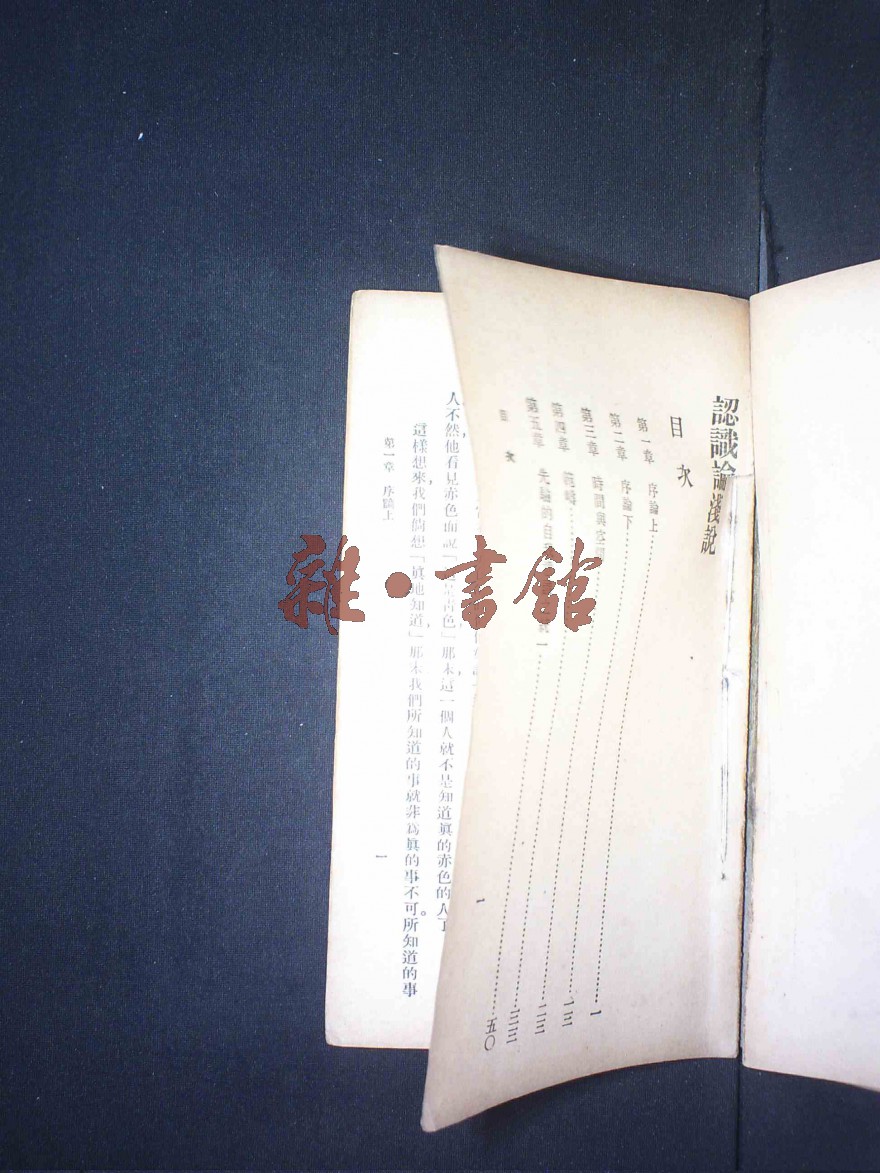 認識論淺說
目次
第一章 序論上 一
第二章 序論下 一三
第三章 時間與空間 二三
第四章 範疇 三三
第五章 先驗的自 五〇
目次
一
人不然他看見赤色而說「 青色」那末這一個人就不是知道眞的赤色的人了
這樣想來,我們的想「眞地知道」那末我們所知道的事就非爲眞的事不可。所知道的事
第一章 序論上
一
雜·書館